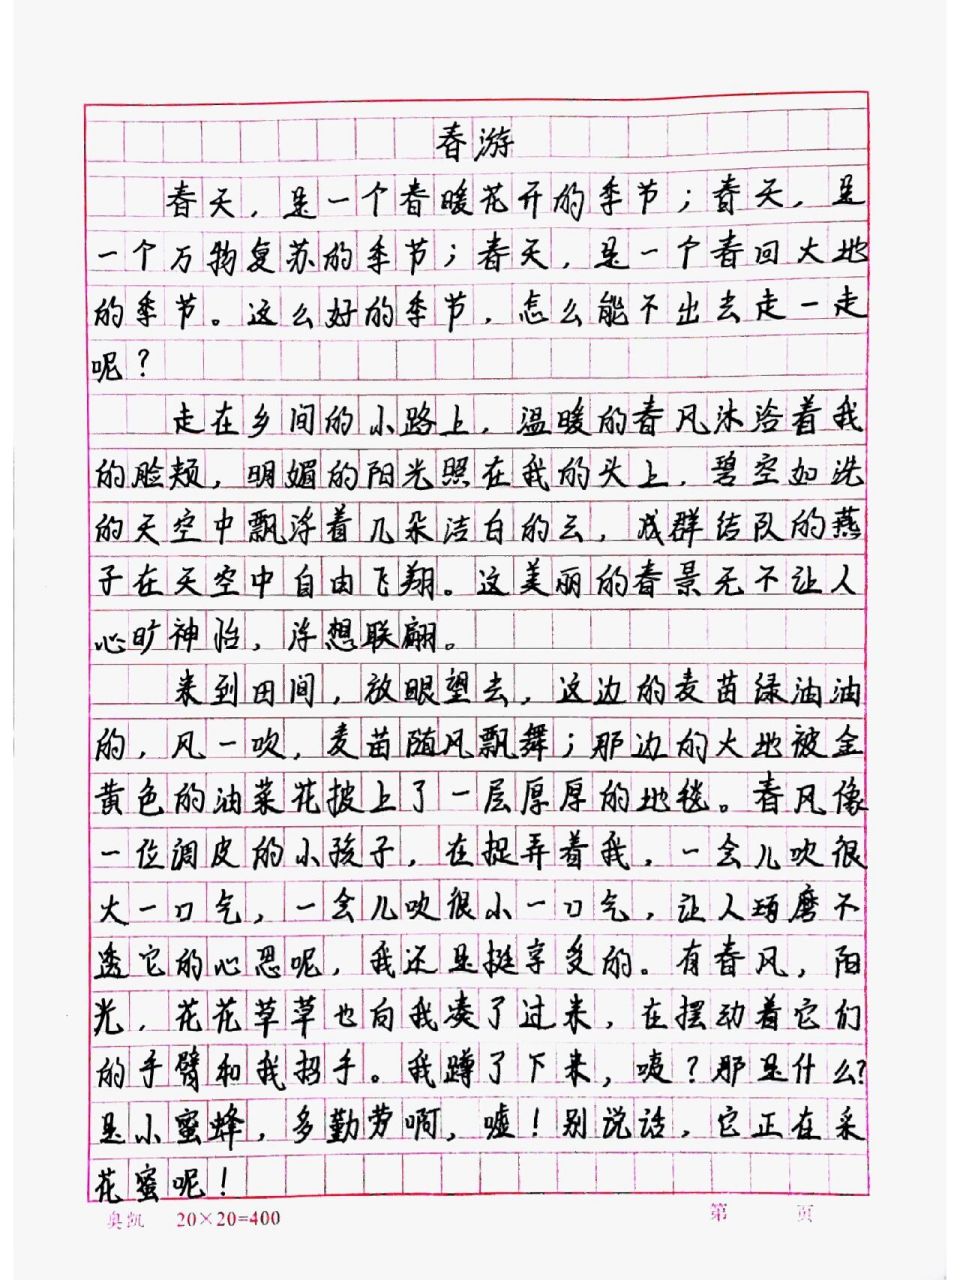 春游
春天，是一个春暖花开的季节；春天，是
一个万物复苏的季节；春天，是一个春回大地
的季节。这么好的季节，怎么能不出去走一走
呢？
走在乡间的小路上，温暖的春风沐浴着我
的脸颊，明媚的阳光照在我的头上，碧空如洗
的天空中飘浮着几朵洁白的云，成群结队的燕
子在天空中自由飞翔。这美丽的春景无不让人
心旷神怡，浮想联翩。
来到田间，放眼望去，这边的麦苗绿油油
的，风一吹，麦苗随风飘舞；那边的大地被金
黄色的油菜花披上了一层厚厚的地毯。春风像
一位调皮的小孩子，在捉弄着我，一会儿吹很
大一口气，一会儿吹很小一口气，让人琢磨不
透它的心思呢，我还是挺享受的。有春风，阳
光，花花草草也向我凑了过来，在摆动着它们
的手臂和我招手。我蹲了下来，咦？那是什么？
是小蜜蜂，多勤劳啊，嘘！别说话，它正在采
花蜜呢！
奥凯 20×20=400 第 页